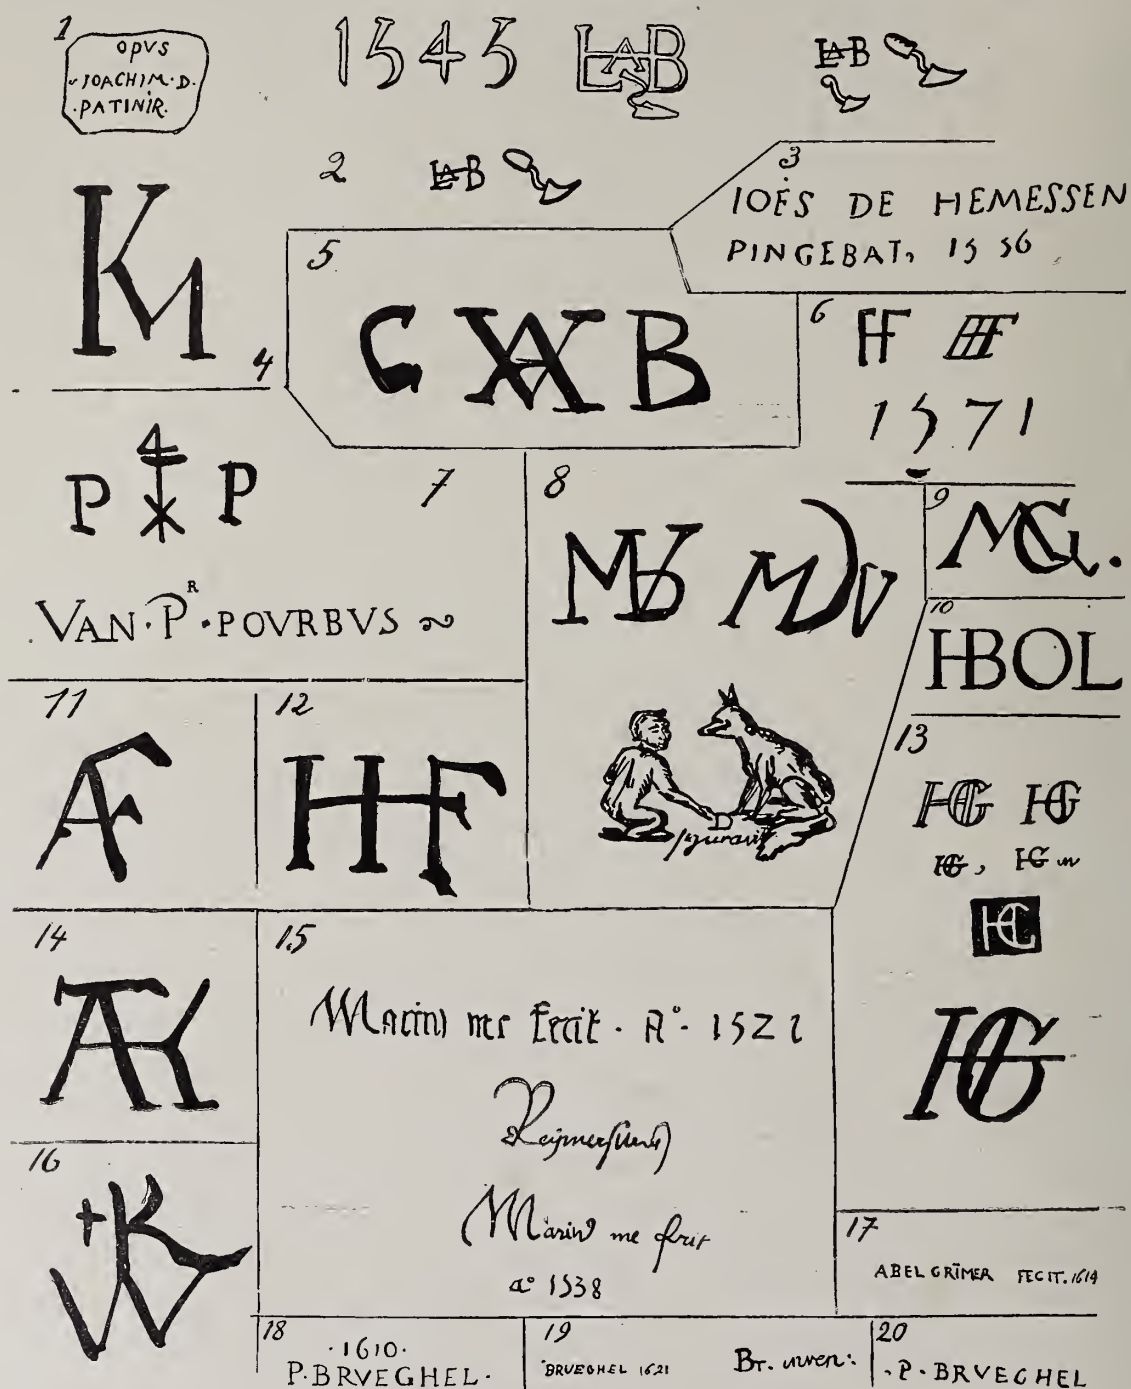 1
OPVS
JOACHIM·D·
·PATINIR·
1545 LAB
LAB
2 LAB
3
IOĖS DE HEMESSEN
PINGEBAT, 1556
KM
4
5
C VA B
6 HF HF
1571
P P
7
VAN·Pᴿ·POVRBVS
8
MV MDV
D
9
MCG.
10
HBOL
11
AF
12
HHF
13
HG HG
HG, HG in
HG
HG
14
AK
15
Marinꝰ me fecit · A°· 1521
Marinꝰ me fecit
a° 1538
16
17
ABEL GRÏMER FECIT. 1614
18
·1610·
P·BRVEGHEL·
19
BRVEGHEL 1621 Br. inven:
20
·P·BRVEGHEL